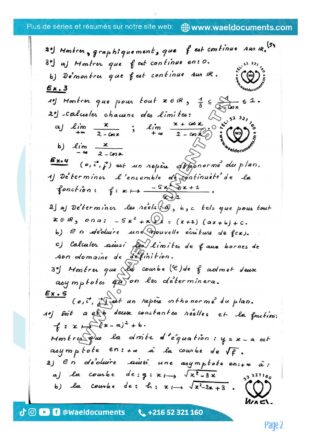 Plus de séries et résumés sur notre site web: www.waeldocuments.com
2°) Montrer, graphiquement, que f est continue sur IR.
3°) a) Montrer que f est continue en: 0.
b) Démontrer que f est continue sur IR.
Ex. 3
1°) Montrer que pour tout x ∈ IR, 1/3 ≤ 1/(2-cosx) ≤ 1.
2°) Calculer chacune des limites:
a) lim x/(2-cosx) ; lim (x+cosx)/(2-cosx)
b) lim -∞ x/(2-cosx)
Ex. 4 (o, i, j) est un repère orthonormé du plan.
1) Déterminer l'ensemble de continuité de la
fonction: f: x ↦
2°) a) Déterminer les réels a, b, c tels que pour tout
x ∈ IR, on a: = (x+2)(ax+b)+c.
b) En déduire une nouvelle écriture de f(x).
c) Calculer ainsi les limites de f aux bornes de
son domaine de définition.
3°) Montrer que la courbe (C) de f admet deux
asymptotes qu'on les déterminera.
Ex. 5 (o, i, j) est un repère orthonormé du plan.
1°) Soit a et b deux constantes réelles et la fonction:
f: x ↦ (x-a)² + b.
Montrer que la droite d'équation: y = x - a est
asymptote en: +∞ à la courbe de √f.
2) En déduire ainsi une asymptote en: +∞ à:
a) la courbe de: g: x ↦ √(x²-3x)
b) la courbe de: h: x ↦ √(x²-2x+3).
@Waeldocuments +216 52 321 160
WWW.WAELDOCUMENTS.TN
Page 2